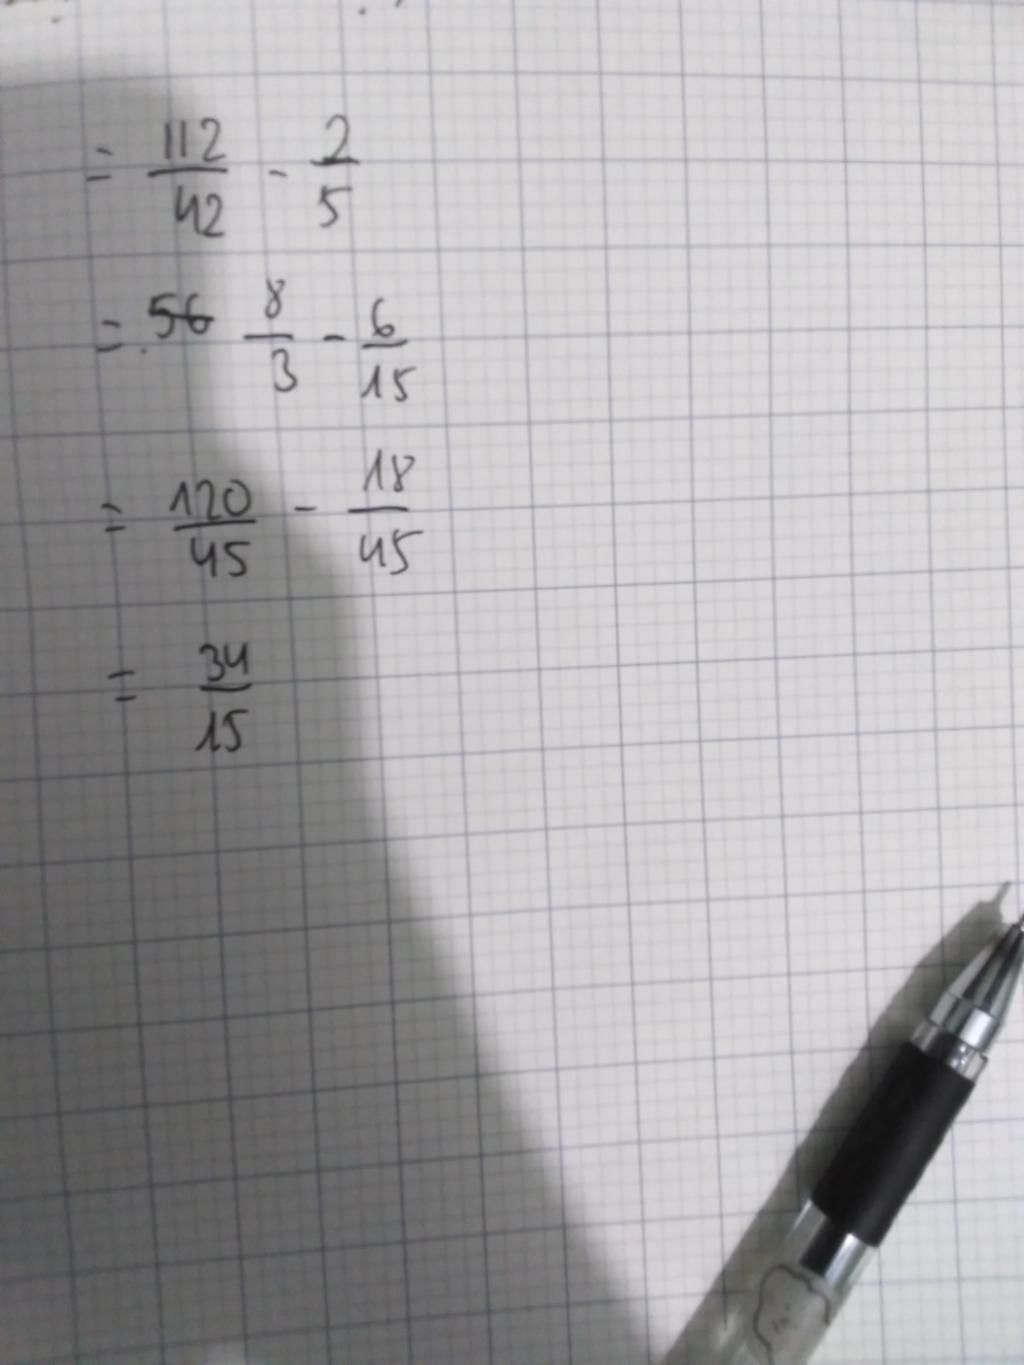 = 112/42 - 2/5
= 56 8/3 - 6/15
= 120/45 - 18/45
= 34/15